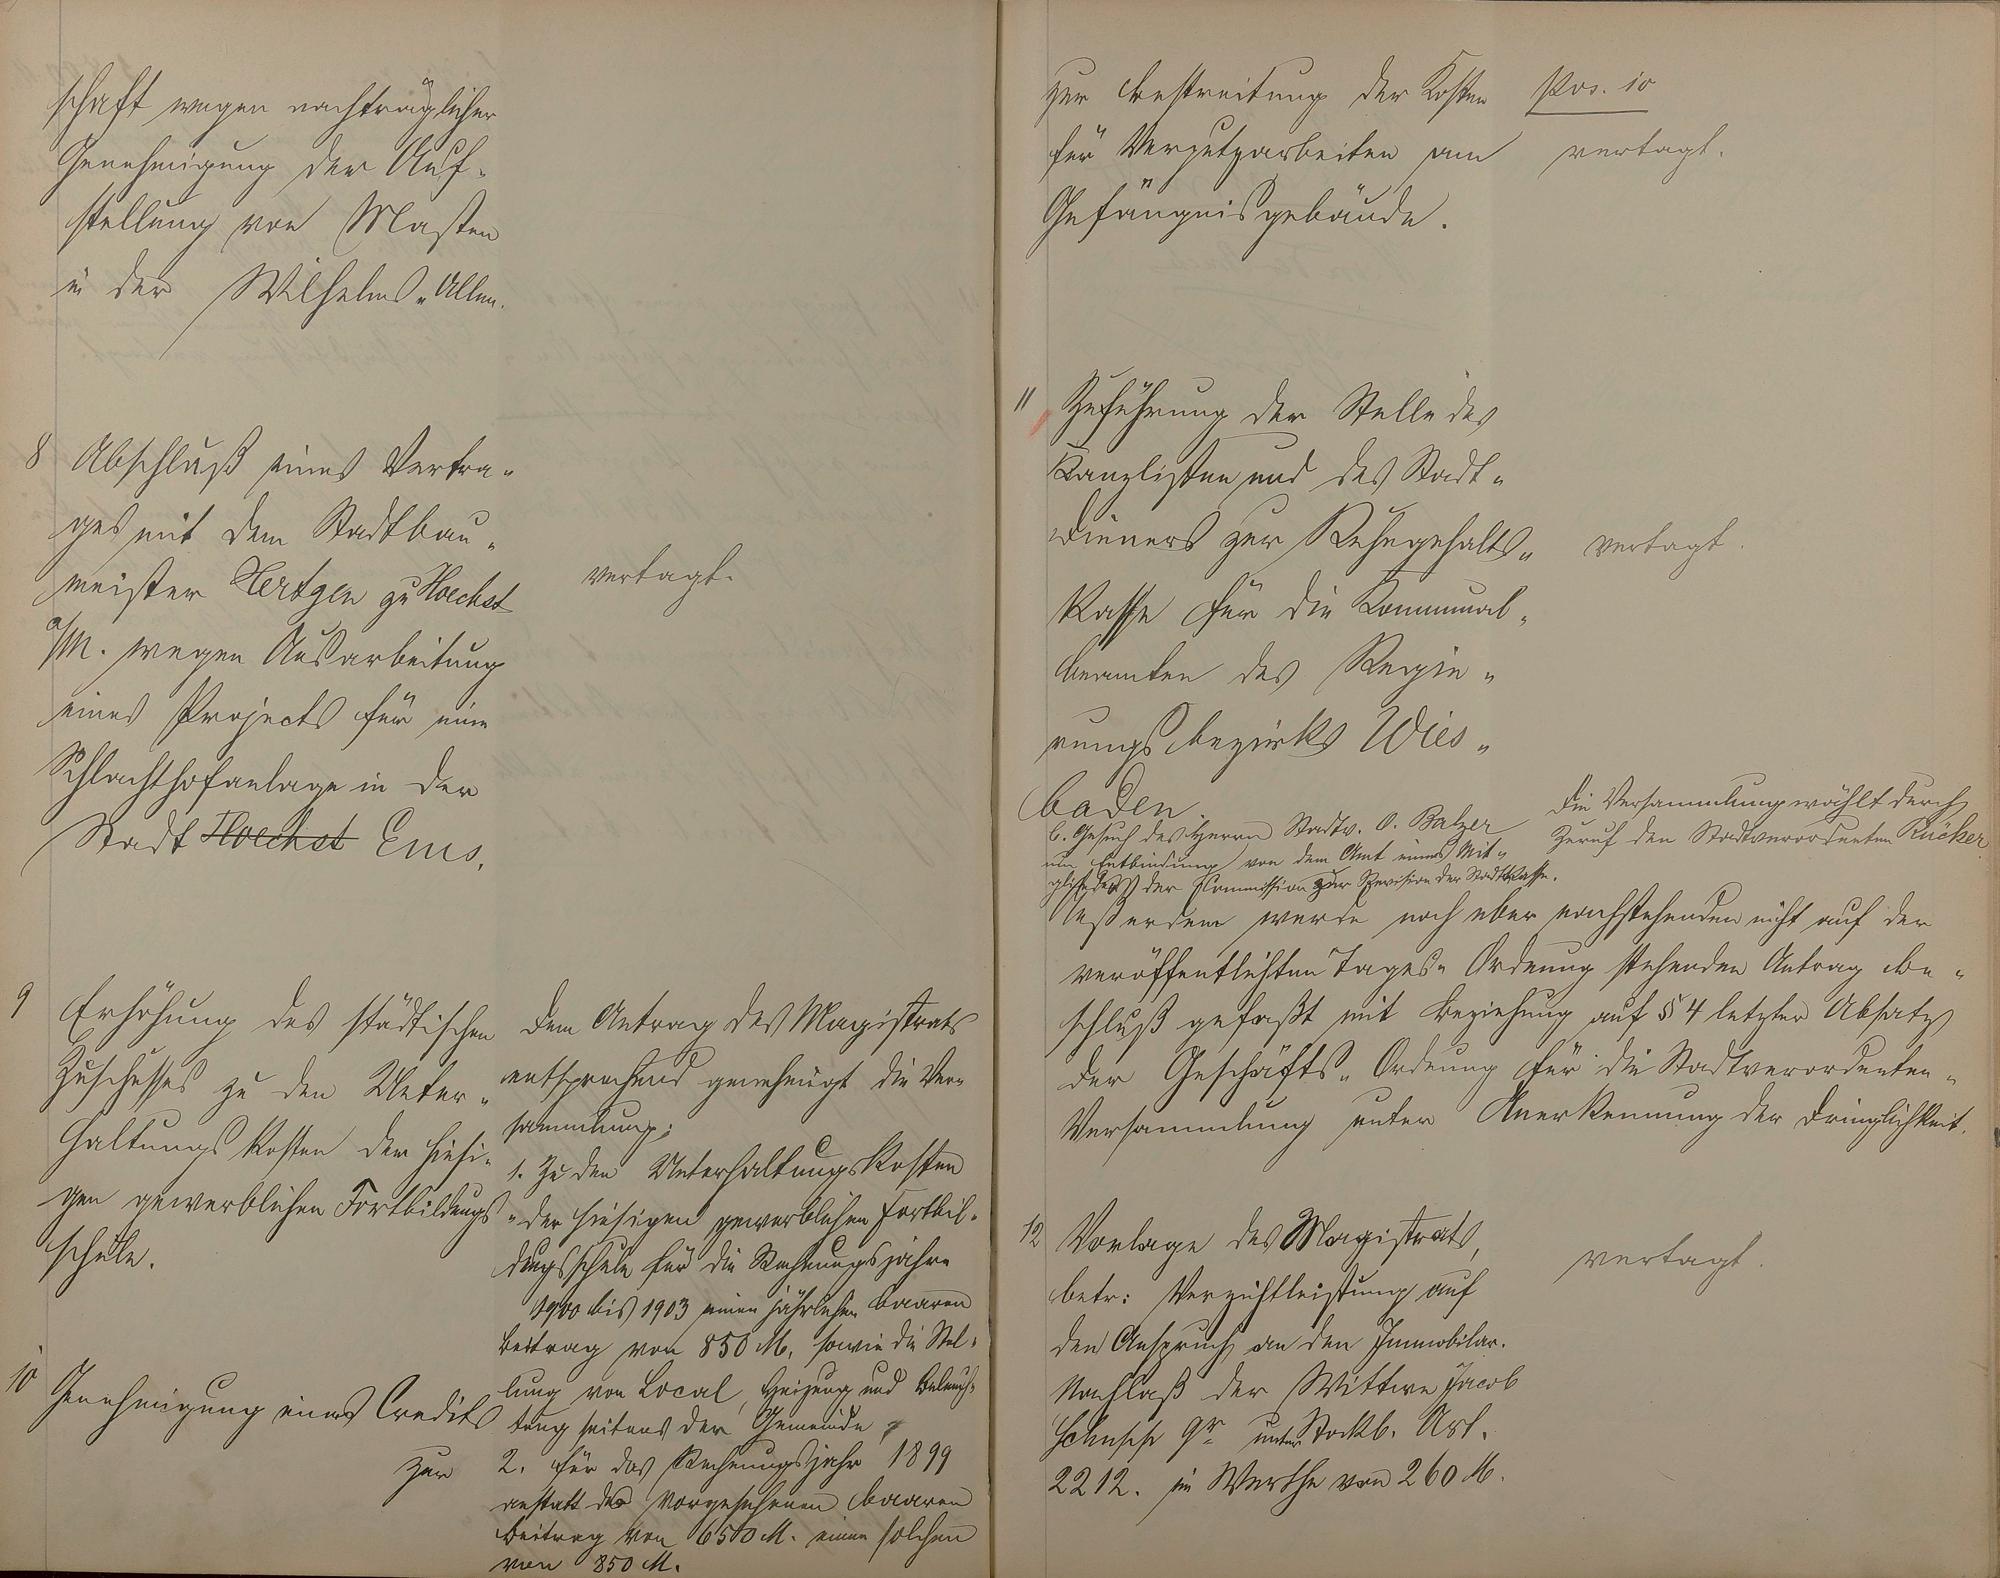 schaft wegen nachträglicher
Genehmigung der Auf-
stellung von Masten
in der Wilhelms-Allee.
8 Abschluß eines Vertra-
ges mit dem Stadtbau-
meister Hertgen zu Hoechst
a/M. wegen Ausarbeitung
eines Projects für eine
Schlachthofanlage in der
Stadt Hoechst Ems.
vertagt.
9 Erhöhung des städtischen
Zuschusses zu den Unter-
haltungskosten der hiesi-
gen gewerblichen Fortbildungs
schule.
Dem Antrag des Magistrats
entsprechend genehmigt die Ver-
sammlung:
1. Zu den Unterhaltungskosten
der hiesigen gewerblichen Fortbil-
dungsschule für die Rechnungsjahre
1900 bis 1903 einen jährlichen baaren
Beitrag von 850 M, sowie die Stel-
lung von Local, Heizung und Beleuch-
tung seitens der Gemeinde
2. für das Rechnungsjahr 1899
anstatt des vorgesehenen baaren
Beitrag von 650 M. einen solchen
von 850 M.
10 Genehmigung eines Credits
zur
zur Bestreitung der Kosten
für Verputzarbeiten am
Gefängnisgebäude.
Pos. 10
vertagt.
11 Zuführung der Stelle des
Kanzlisten und des Stadt-
dieners zur Ruhegehalts-
Kasse für die Kommunal-
beamten des Regie-
rungsbezirks Wies-
baden.
vertagt.
b. Gesuch des Herrn Stadtv. O. Balzer
um Entbindung von dem Amt eines Mit-
gliedes der Commission zur Revision der Stadtkasse.
Die Versammlung wählt durch
Zuruf den Stadtverordneten Rücker
Außerdem wurde noch über nachstehenden nicht auf der
veröffentlichten Tages-Ordnung stehenden Antrag Be-
schluß gefaßt mit Beziehung auf § 4 letzter Absatz
der Geschäfts-Ordnung für die Stadtverordneten-
Versammlung unter Anerkennung der Dringlichkeit.
12 Vorlage des Magistrats,
betr: Verzichtleistung auf
den Anspruch an den Immobilar-
Nachlaß der Wittwe Jacob
9r unter Stockb. Art.
2212. im Werthe von 260 M.
vertagt.